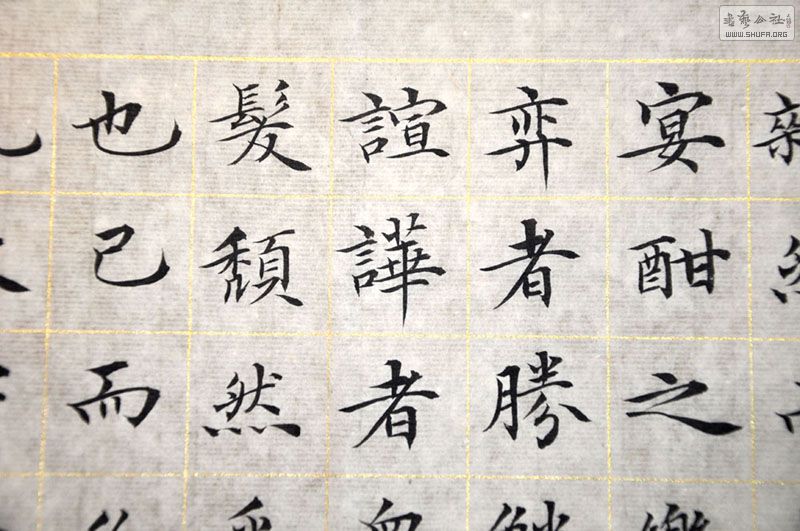 宴酣之
弈者勝
諠譁者
髮頽然
也已而
書藝公社
WWW.SHUFA.ORG